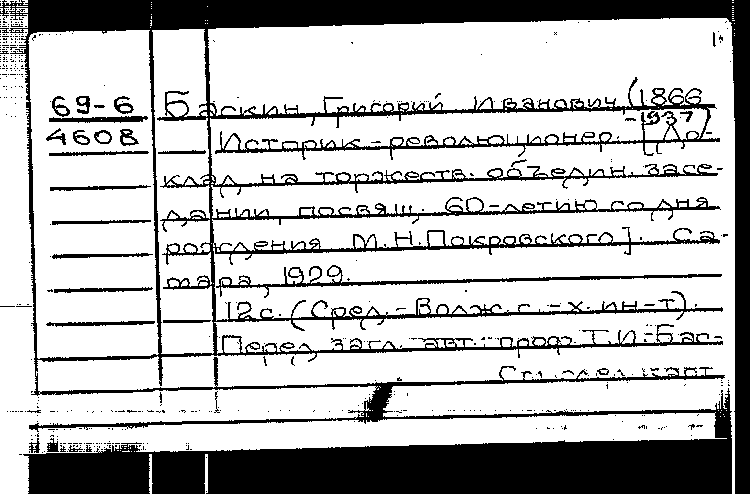 69-6 Баскин, Григорий Иванович, (1866
-1937)
4608 Историк-революционер. [До-
клад на торжеств. объедин. засе-
дании, посвящ. 60-летию со дня
рождения М.Н.Покровского]. Са-
мара, 1929.
12с. (Сред.-Волж. с.-х. ин-т).
Перед загл. авт.: проф. Г.И. Бас-
См. след. карт.